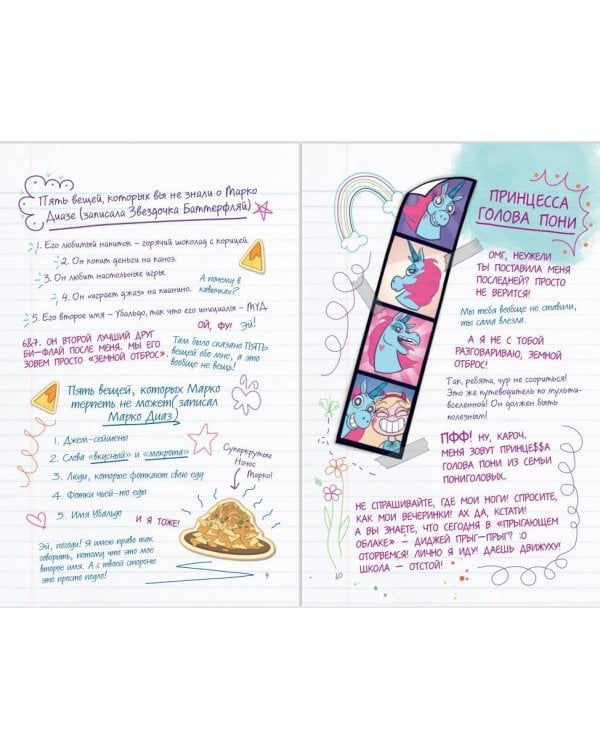 Пять вещей, которых вы не знали о Марко
Диазе (записала Звездочка Баттерфляй)
1. Его любимый напиток – горячий шоколад с корицей.
2. Он копит деньги на каноэ.
3. Он любит настольные игры.
А почему в
кавычках?
4. Он «играет джаз» на пианино.
5. Его второе имя – Убальдо, так что его инициалы – МУД.
Ой, фу!
Эй!
6&7. Он второй лучший друг
Би-Флай после меня. Мы его
зовем просто «земной отброс».
Там было сказано ПЯТЬ
вещей обо мне, а это
вообще не вещь!
Пять вещей, которых Марко
терпеть не может (записал
Марко Диаз)
1. Джем-сейшены
2. Слова «вкусный» и «мокрота»
3. Люди, которые фоткают свою еду
4. Фотки чьей-то еды
5. Имя Убальдо
И я тоже!
Суперкрутые
Начос
Марко!
Эй, погоди! Я имею право так
говорить, потому что это мое
второе имя. А с твоей стороны
это просто подло!
9
ПРИНЦЕССА
ГОЛОВА ПОНИ
ОМГ, НЕУЖЕЛИ
ТЫ ПОСТАВИЛА МЕНЯ
ПОСЛЕДНЕЙ? ПРОСТО
НЕ ВЕРИТСЯ!
Мы тебя вообще не ставили,
ты сама влезла.
А Я НЕ С ТОБОЙ
РАЗГОВАРИВАЮ, ЗЕМНОЙ
ОТБРОС!
Так, ребята, чур не ссориться!
Это же путеводитель по мульти-
вселенной! Он должен быть
полезным!
ПФФ! НУ, КАРОЧ.
МЕНЯ ЗОВУТ ПРИНЦЕ$$А
ГОЛОВА ПОНИ ИЗ СЕМЬИ
ПОНИГОЛОВЫХ.
НЕ СПРАШИВАЙТЕ, ГДЕ МОИ НОГИ! СПРОСИТЕ,
КАК МОИ ВЕЧЕРИНКИ! АХ ДА, КСТАТИ!
А ВЫ ЗНАЕТЕ, ЧТО СЕГОДНЯ В «ПРЫГАЮЩЕМ
ОБЛАКЕ» – ДИДЖЕЙ ПРЫГ-ПРЫГ? :O
ОТОРВЕМСЯ! ЛИЧНО Я ИДУ! ДАЕШЬ ДВИЖУХУ!
ШКОЛА – ОТСТОЙ!
10